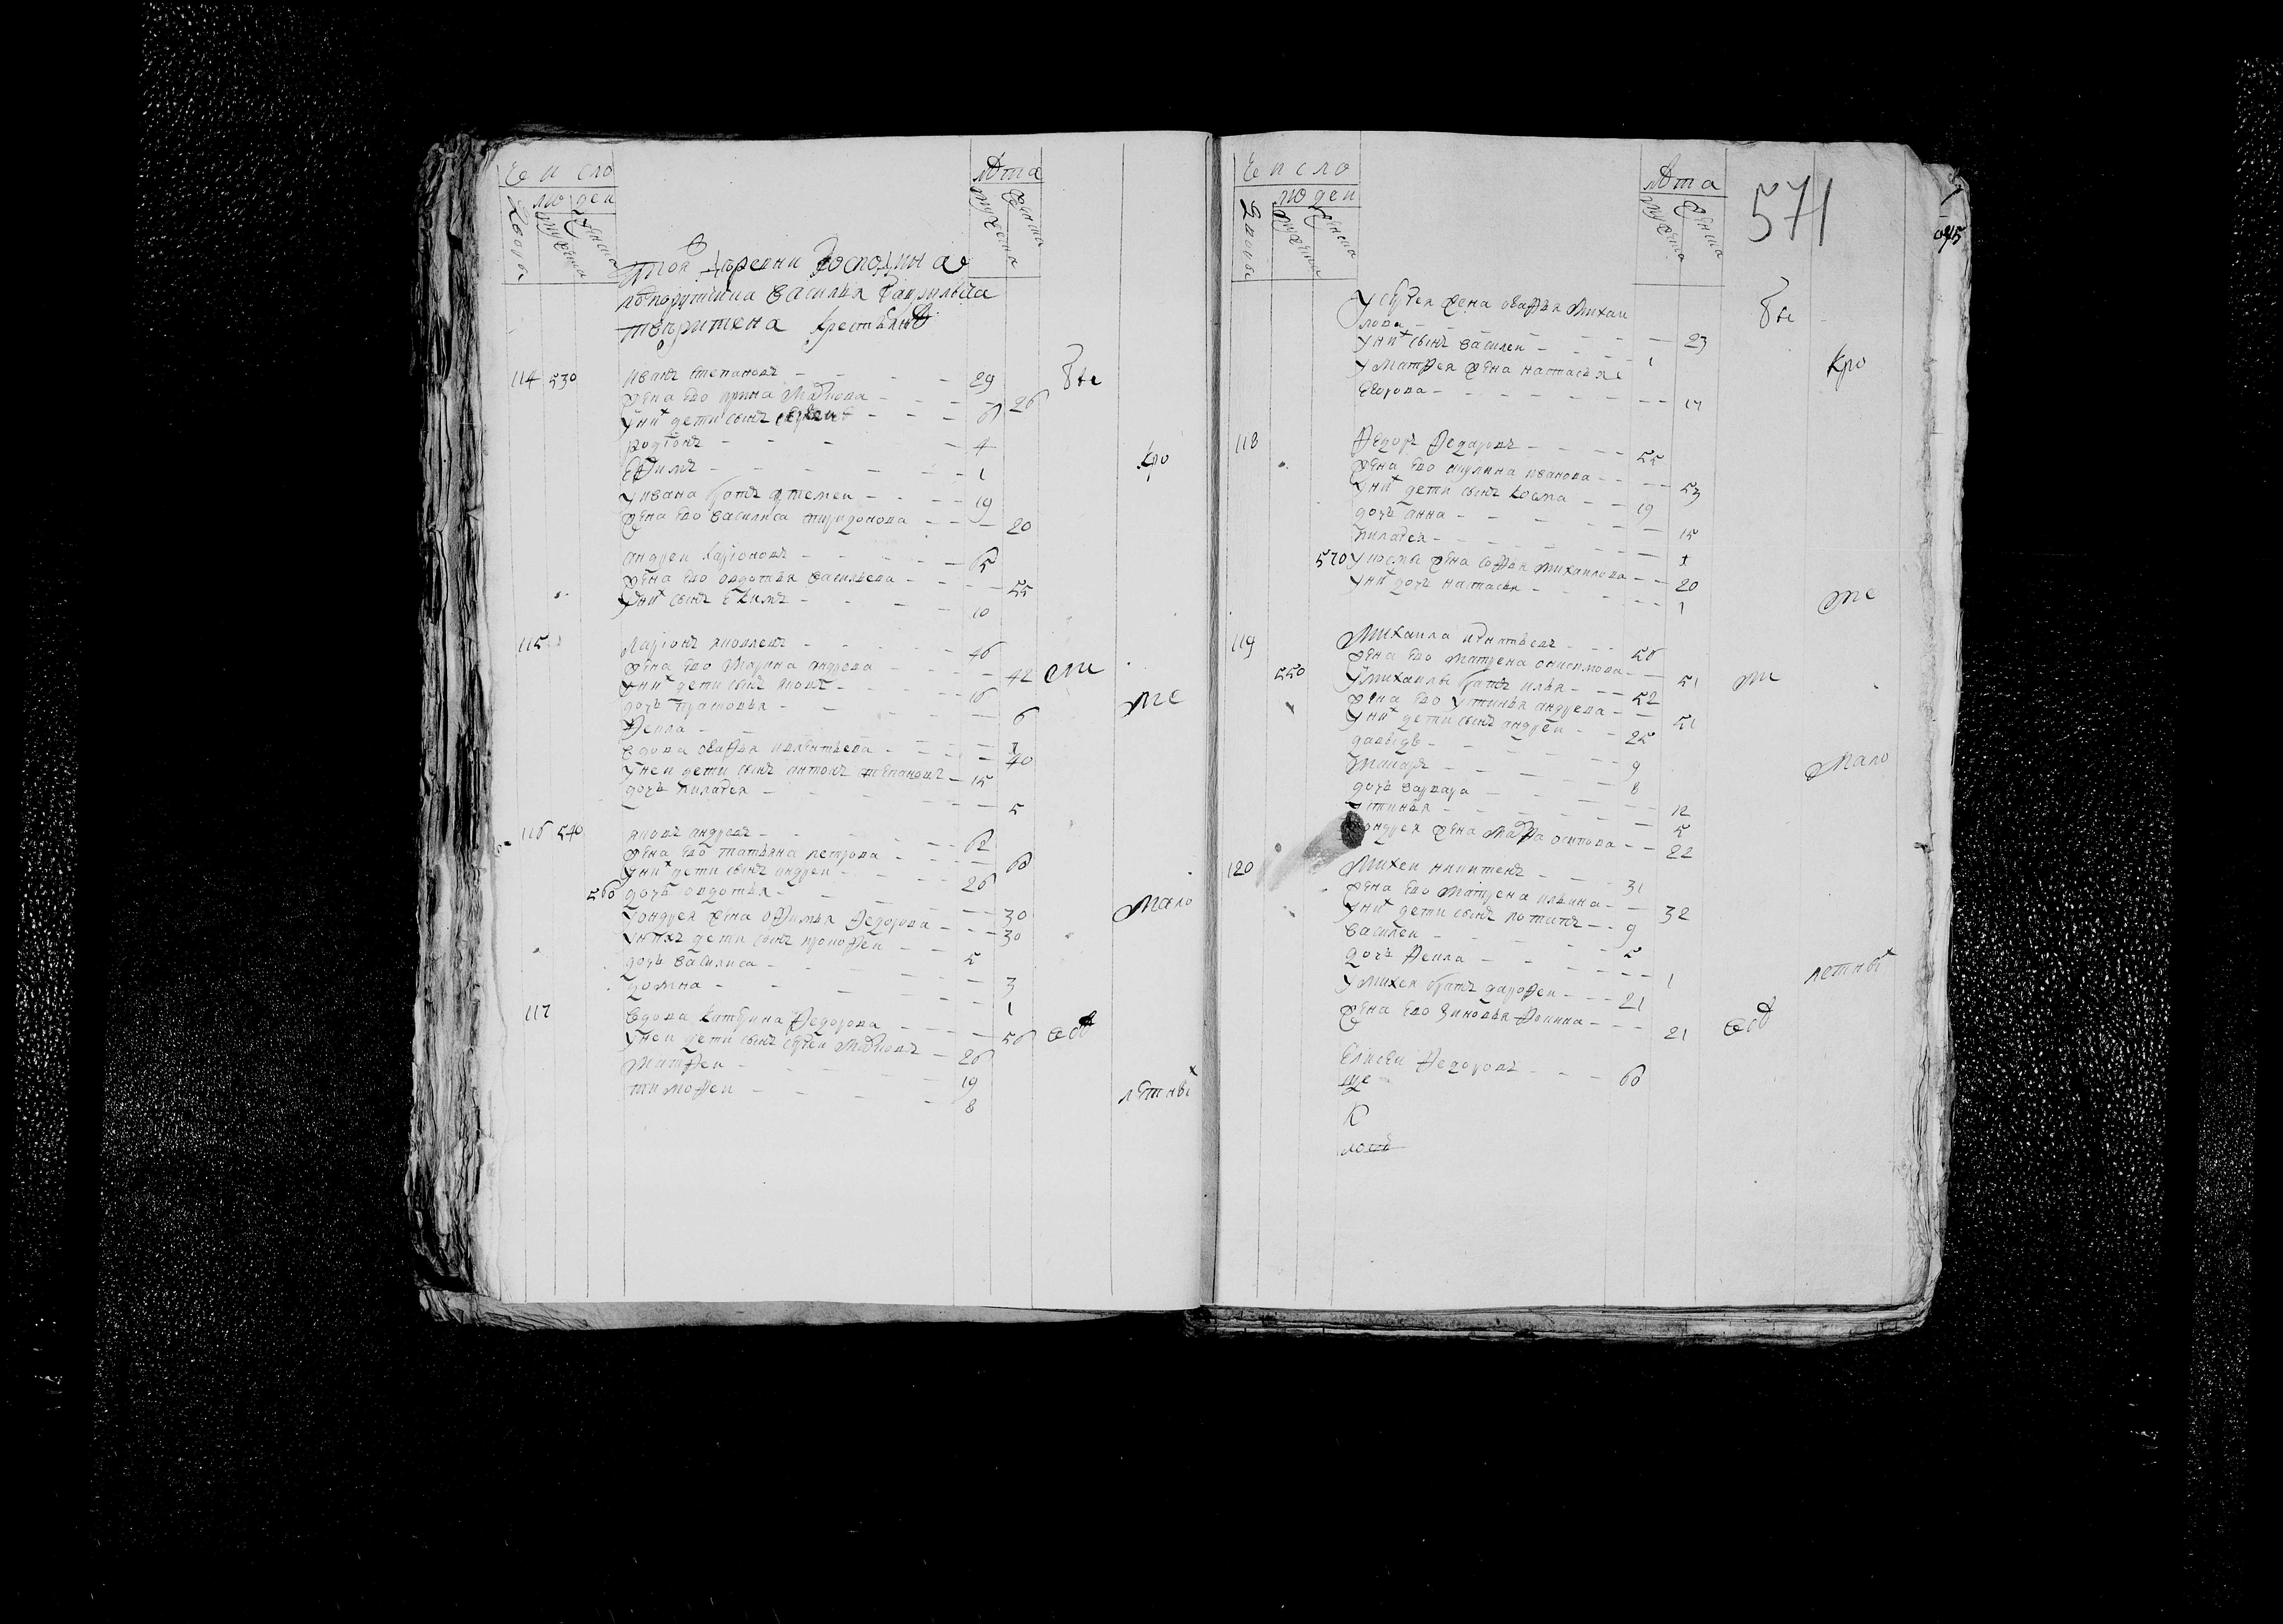 Число
людеи
Дворы
мужеска
женска
Лѣта
мужеска
женска
той деревни господина
порутчика василья гаврильева
крестьяне
114 530 иванъ степановъ 29 бы
жена его ирина маркова 26
у них дети сынъ 6
родионъ 4
ефимъ 1 кро
у ивана братъ артемеи 19
жена его василиса спиридонова 20
андреи ларионовъ 65
жена его овдотья васильева 55
у них сынъ екимъ 10
115 ларионъ яковлевъ 46
жена его марина андреева 42 ли
у них дети сынъ яковъ 16
дочь прасковья 6 ме
фекла 1
вдова агафья 40
у неи дети сынъ антонъ степановъ 15
дочь пилагея 5
116 540 яковъ андреевъ 62
жена его татьяна петрова 60
у них дети сынъ андреи 26
560 дочь овдотья 30 мало
у ондрея жена офимья федорова 30
у них дети сынъ прокофеи 5
дочь василиса 3
домна 1
117 вдова катерина федорова 56 всѣ
у неи дети сынъ сергеи марковъ 26
матфеи 19
тимофеи 8 летных
Число
людеи
Дворы
мужеска
женска
Лѣта
мужеска
женска
571
у сергея жена агафья михаи
лова 23 бы
у них сынъ василеи 1
у матфея жена настасья кро
егорова 17
118 федоръ федаровъ 55
жена его акулина иванова 53
у них дети сынъ косма 19
дочь анна 15
пилагея 1
570 у космы жена софья михаилова 20
у них дочь настасья 1 ме
119 михаила игнатьевъ 56
жена его матрена онисимова 51
550 у михаилы братъ илья 52 ли
жена его устинья андреева 51
у них дети сынъ андреи 25
давыдъ 9
макаръ 8 мало
дочь варвара 12
устинья 5
у ондрея жена марфа осипова 22
120 михеи никитенъ 31
жена его матрена ильина 32
у них дети сынъ потапъ 9
василеи 5
дочь фекла 1 летных
у михея братъ дарофеи 21
жена его зиновья фокина 21 всѣ
елисеи федоровъ 60